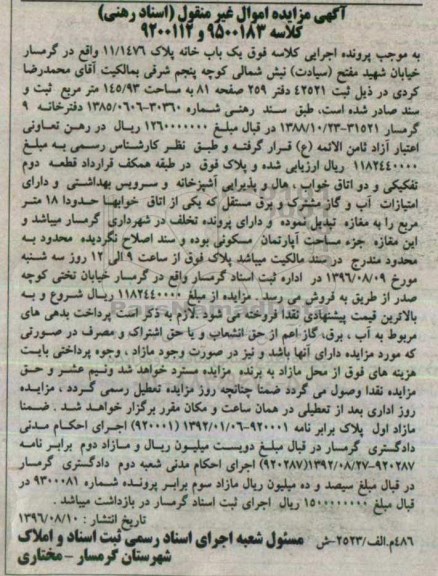 آگهی مزایده اموال غیر منقول (اسناد رهنی)
کلاسه ۹۵۰۰۱۸۳ و ۹۲۰۰۱۱۲
به موجب پرونده اجرایی کلاسه فوق یک باب خانه پلاک ۱۱/۱۴۷۶ واقع در گرمسار
خیابان شهید مفتح (سیادت) نبش شمالی کوچه پنجم شرقی بمالکیت آقای محمدرضا
کردی در ذیل ثبت ۴۲۵۲۱ دفتر ۲۵۹ صفحه ۸۱ به مساحت ۱۴۵/۹۳ متر مربع ثبت و
سند صادر شده است، طبق سند رهنی شماره ۳۰۳۶۰-۱۳۸۵/۰۶۰۶ دفترخانه ۹
گرمسار ۳۱۵۲۱-۱۳۸۸/۱۰/۲۳ در قبال مبلغ ۱۲۶۰۰۰۰۰۰۰ ریال در رهن تعاونی
اعتبار آزاد ثامن الائمه (ع) قرار گرفته و طبق نظر کارشناس رسمی به مبلغ
۱۱۸۲۴۴۰۰۰۰ ریال ارزیابی شده و پلاک فوق در طبقه همکف قرارداد قطعه دوم
تفکیکی و دو اتاق خواب ، هال و پذیرایی آشپزخانه و سرویس بهداشتی و دارای
امتیازات آب و گاز مشترک و برق مستقل که یکی از اتاق خوابها حدودا ۱۸ متر
مربع را به مغازه تبدیل نموده و دارای پرونده تخلف در شهرداری گرمسار میباشد و
این مغازه جزء مساحت آپارتمان مسکونی بوده و سند اصلاح نگردیده محدود به
محدود مندرج در سند مالکیت میباشد پلاک فوق از ساعت ۹ الی ۱۲ روز سه شنبه
مورخ ۱۳۹۶/۰۸/۰۹ در اداره ثبت اسناد گرمسار واقع در گرمسار خیابان تختی کوچه
صدر از طریق به فروش می رسد . مزایده از مبلغ ۱۱۸۲۴۴۰۰۰۰ ریال شروع و به
بالاترین قیمت پیشنهادی نقدا فروخته می شود .لازم به ذکر است پرداخت بدهی های
مربوط به آب ، برق، گاز اعم از حق انشعاب و یا حق اشتراک و مصرف در صورتی
که مورد مزایده دارای آنها باشد و نیز در صورت وجود مازاد ، وجوه پرداختی بابت
هزینه های فوق از محل مازاد به برنده مزایده مسترد خواهد شد ونیم عشر و حق
مزایده نقدا وصول می گردد ضمنا چنانچه روز مزایده تعطیل رسمی گردد ، مزایده
روز اداری بعد از تعطیلی در همان ساعت و مکان مقرر برگزار خواهد شد . ضمنا
مازاد اول پلاک برابر نامه ۹۲۰۰۰۱-۱۳۹۲/۰۱/۰۶ (۹۲۰۰۰۱) اجرای احکام مدنی
دادگستری گرمسار در قبال مبلغ دویست میلیون ریال و مازاد دوم برابر نامه
۹۲۰۲۸۷-۱۳۹۲/۰۸/۲۷(۹۲۰۲۸۷) اجرای احکام مدنی شعبه دوم دادگستری گرمسار
در قبال مبلغ سیصد و ده میلیون ریال مازاد سوم برابر پرونده شماره ۹۳۰۰۰۸۱ در
قبال مبلغ ۱۵۰۰۰۰۰۰۰۰ ریال اجرای ثبت اسناد گرمسار در بازداشت میباشد .
تاریخ انتشار : ۱۳۹۶/۰۸/۱۰
۴۸۶م.الف/۲۵۲۳-ش مسئول شعبه اجرای اسناد رسمی ثبت اسناد و املاک
شهرستان گرمسار - مختاری